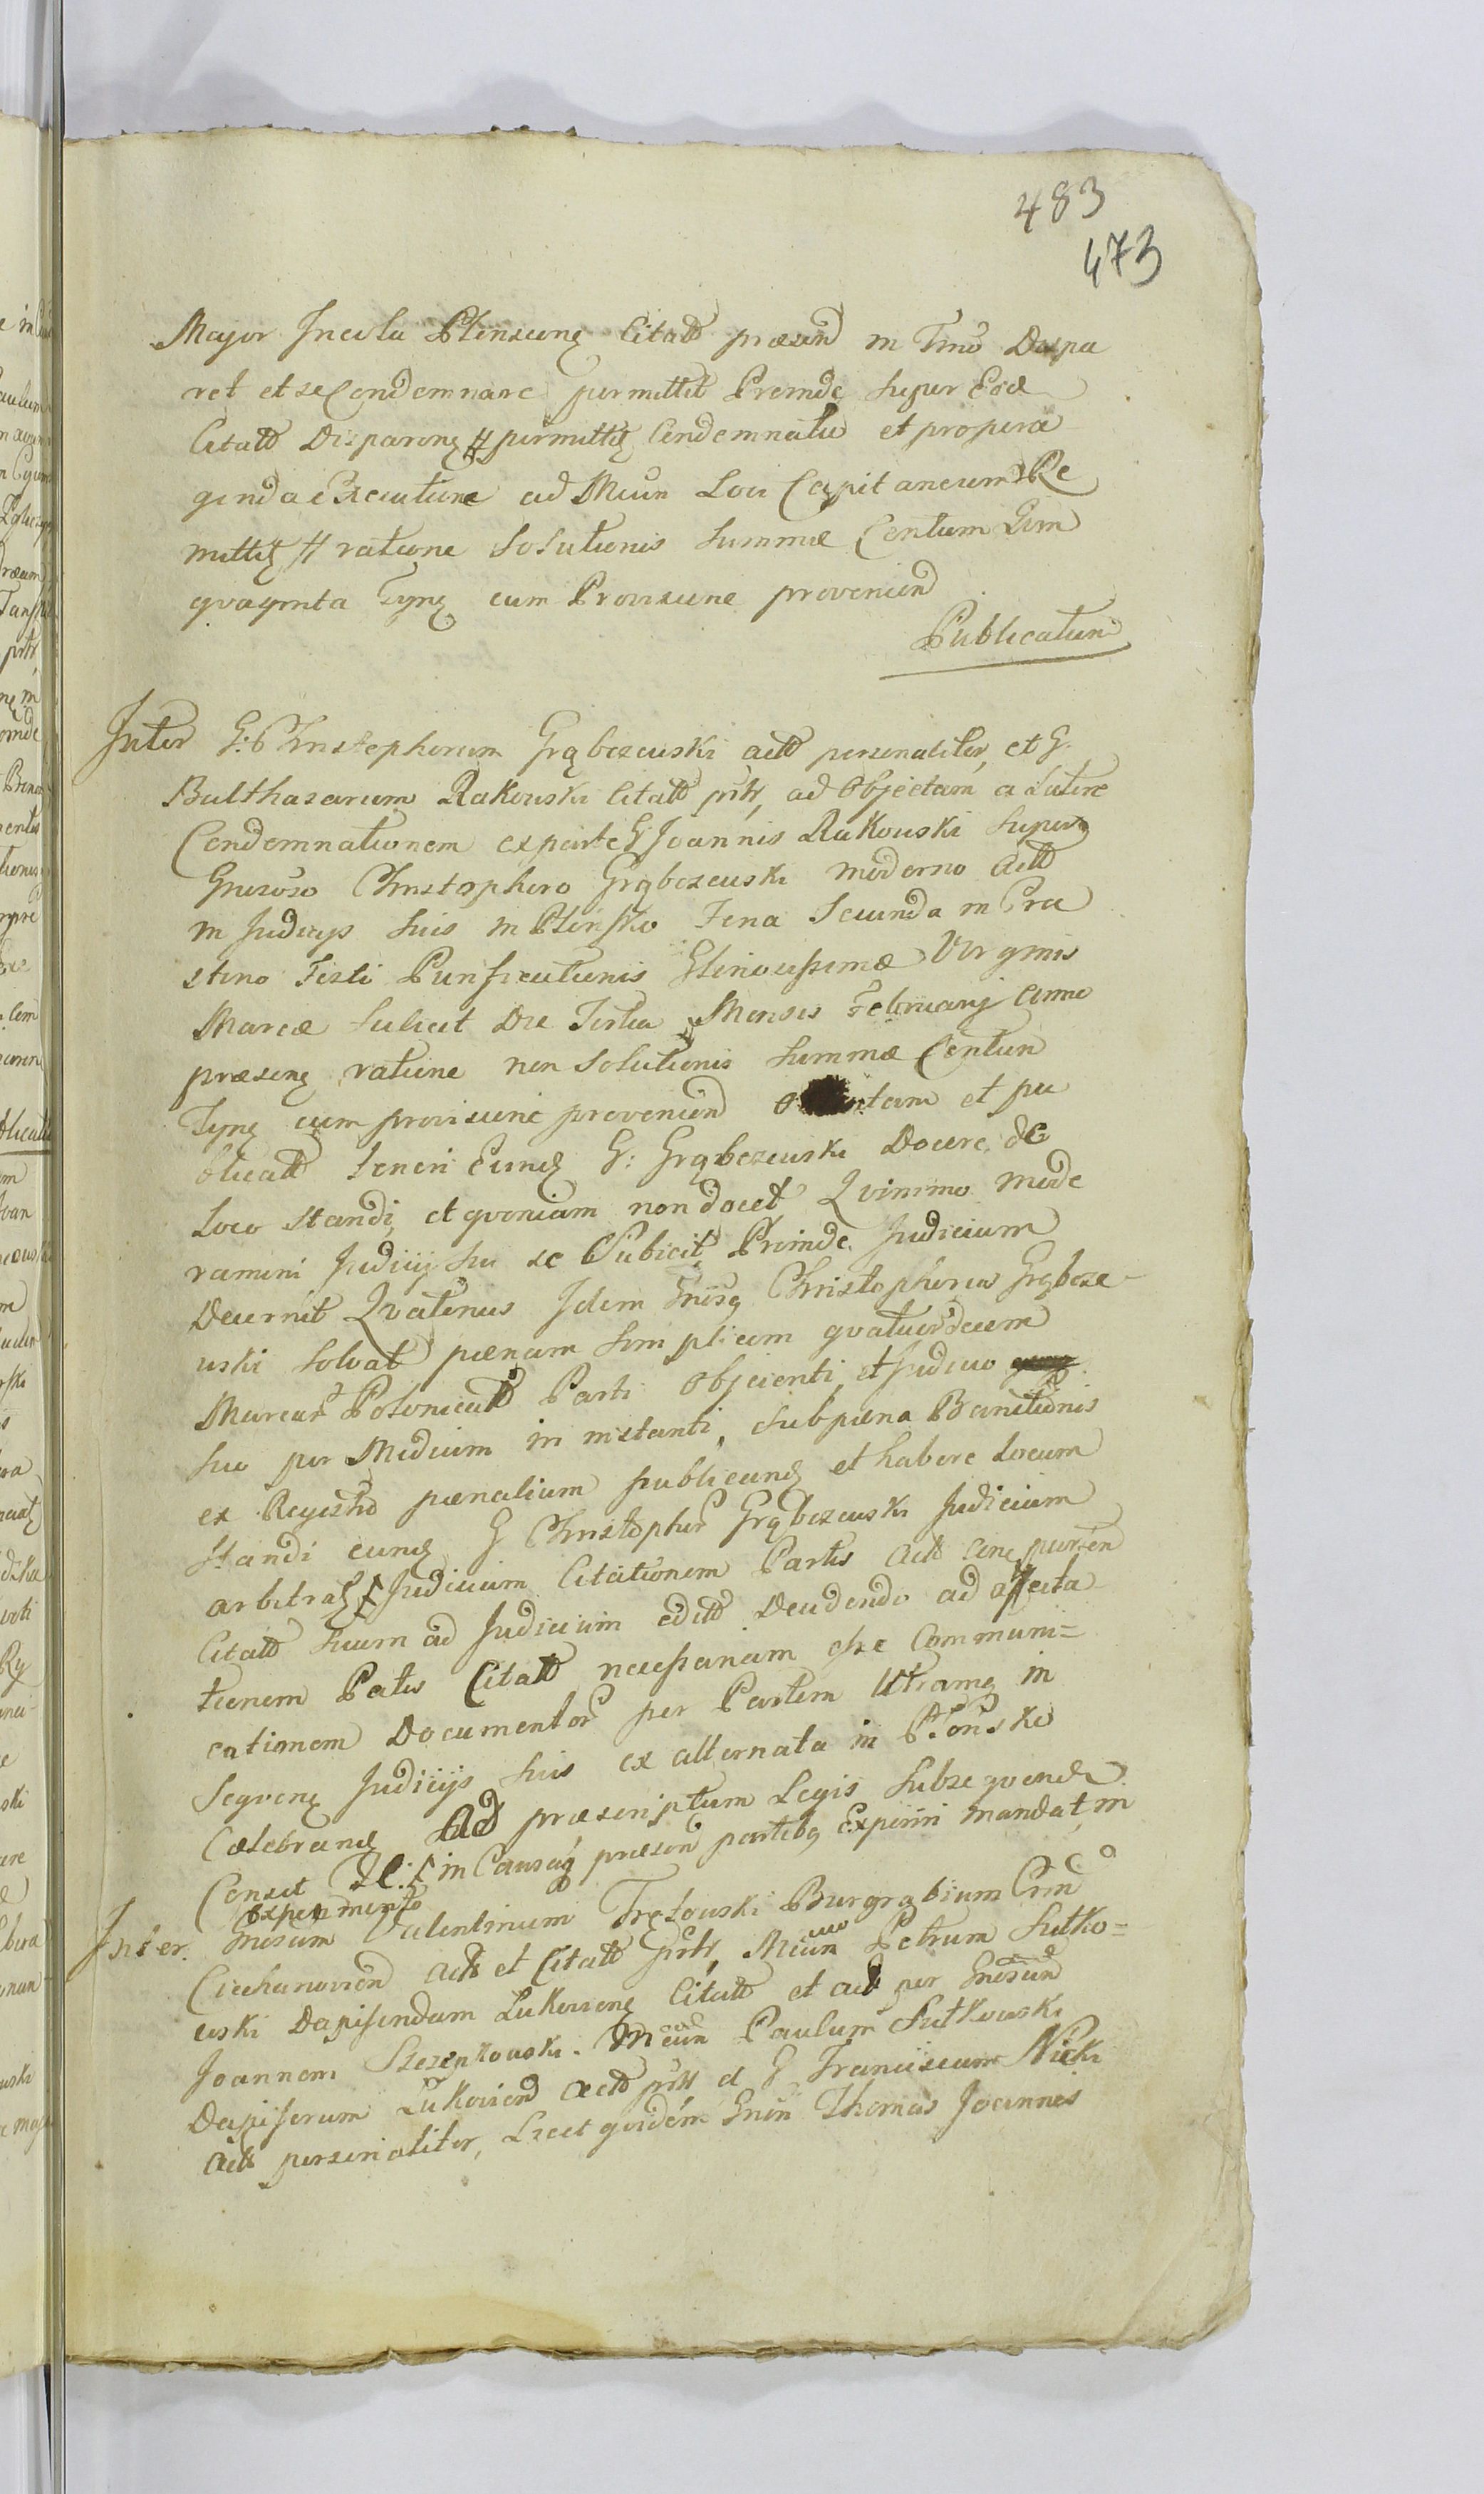 483
473
Major Incola Plonscens Citatt præsend in Tmo Dispa
ret et se Condemnare permittit Proinde super Eod
Citatt Disparens # permittit Condemnatio et pro pera
genda executione ad Mcum Loci Capitaneum Re
mittit # ratione Solutionis Summæ Centum Qvin
qvaginta Tyms cum Provisione proveniend
Publicatum
Inter G: Christophorum Grąbczewski actt personaliter, et G.
Balthazarum Rakowski Citatt pntr, ad Objectam a Latere
Condemnationem ex parte G Joannis Rakowski super
Gneroso Christophoro Grąbczewski moderno Actt
in Judicijs suis in Płońsko Feria Secunda in Cra
stino Festi Purificationis Gloriosissimæ Virginis
Mariæ Scilicet Die Tertia Mensis Februarij Anno
præsens ratione non Solutionis Summæ Centum
Tyms cum provisione proveniend et pu
blicatt teneri Eund G: Grąbczewski Docere de
Loco Standi, et qvoniam non docet, Qvinimo mode
ramini Judicij sui se Subicit, Proinde Judicium
Decernit Qvatenus Idem Gnrosus Christophorus Grąbcze-
wski Solvat pænam simplicem qvatuordecem
Marcar Polonicatt Parti Objcienti, et Judicio
suo per Medium in instanti, sub pæna Banitionis
ex Regestro pænalium publicand et habere Locum
Standi eund G Christophor Grąbczewski Judicium
arbitrat, Judicium Citationem Partis Actt comparen
Citatt suum ad Judicium editt Deudendo ad affecta
tionem Patis Citatt necessariam esse Communi=
cationem Documentor per Partem Utramq in
Seqvens Judicijs suis ex alternata in Płońsko
Celebrand Ad præscriptum Legis Subseqvend
Censet in Causaq præsen partibq Expiriri mandat, in
experimento
Inter. Gnrosum Valentinum Trętowski Burgrabium Crin
Ciechanovien Actt et Citatt pntr, Mcum Petrum Sutko=
wski Dapiferidam Lukoviens Citatt et act per Gnrosum
Joannem Szczepkowski. Mcum Paulum Sutkowski
Dapiferum Lukovien actt pntr et G Franciscum Nicki
Actt personaliter, Licet qvidem Gnrsi Thomas Joannes